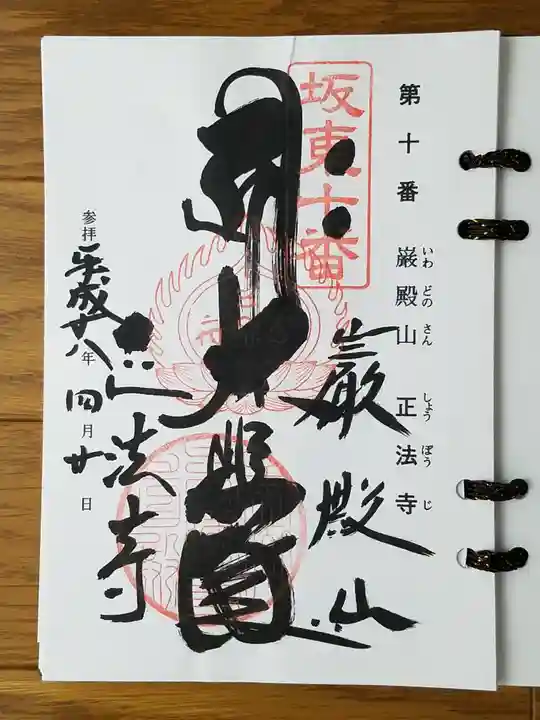 第十番 巌殿山 正法寺
いわ どの さん しょう ぼう じ
坂東十番
巌殿山
大悲閣
正法寺
参拝 平成廿八年 四月廿日